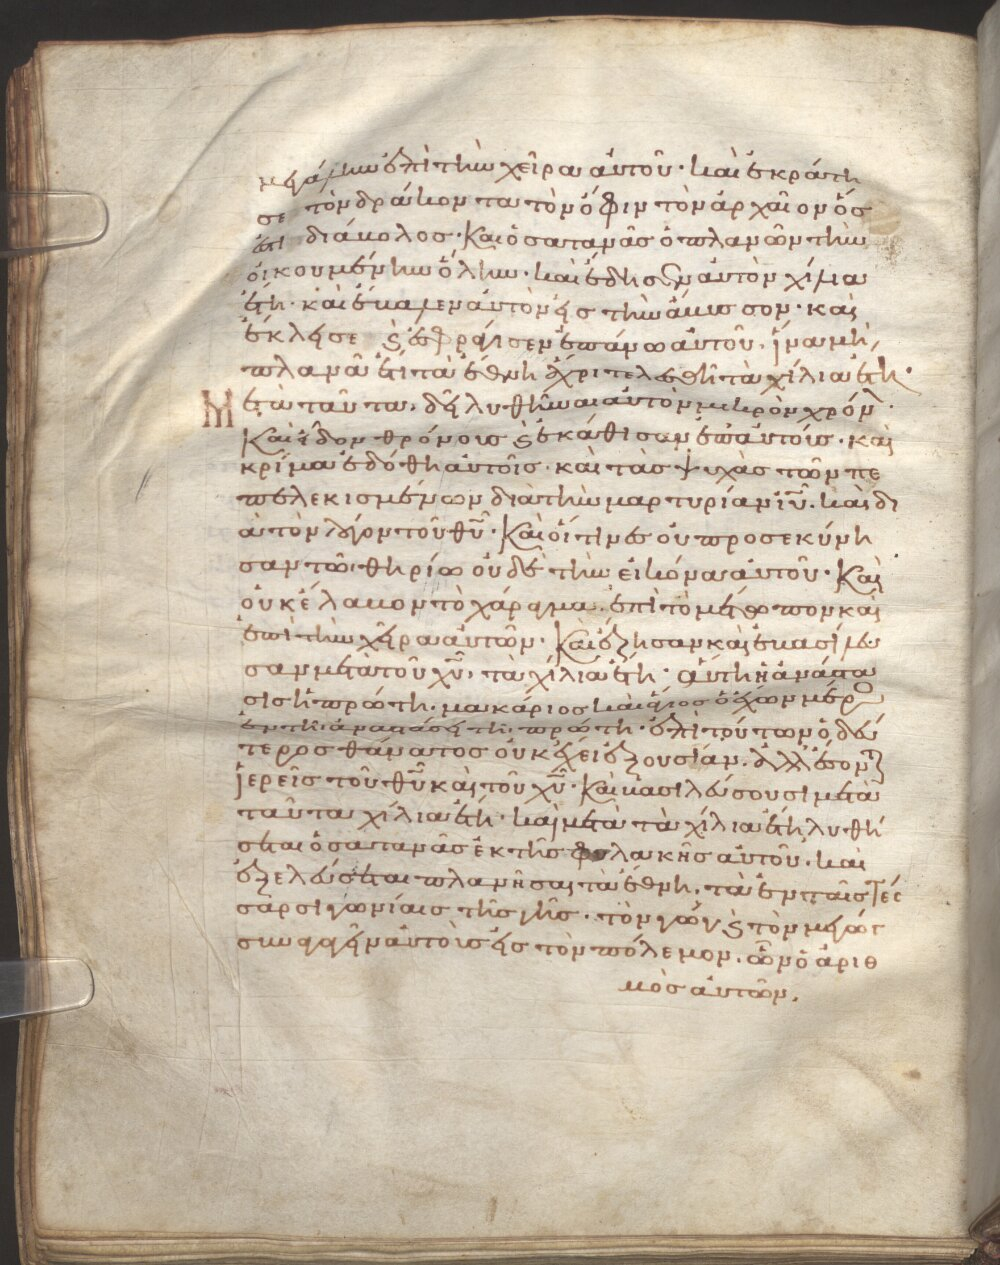 μεγάλην ἐπὶ τὴν χεῖρα αὐτοῦ· καὶ ἐκράτη
σε τὸν δράκοντα τὸν ὄφιν τὸν ἀρχαῖον ὅς
ἐστι διάβολος· Καὶ ὁ σατανᾶς ὁ πλανῶν τὴν
οἰκουμένην ὅλην· καὶ ἔδησεν αὐτὸν χίλια
ἔτη· καὶ ἔβαλεν αὐτὸν εἰς τὴν ἄβυσσον· καὶ
ἔκλεισε ϗ ἐσφράγισεν ἐπάνω αὐτοῦ, ἵνα μὴ
πλανᾶ ἔτι τὰ ἔθνη ἄχρι τελεσθῆ τὰ χίλια ἔτη·
Μετὰ ταῦτα, δεῖ λυθῆναι αὐτὸν μικρὸν χρόν·
Καὶ εἶδον θρόνους ϗ ἐκάθισαν ἐπ αὐτούς· καὶ
κρίμα ἐδόθη αὐτοῖς· καὶ τὰς ψυχὰς τῶν πε
πελεκισμένων διὰ τὴν μαρτυρίαν ἰυ. καὶ δι
ὰ τὸν λόγον τοῦ θυ· Καὶ οἵτινες οὐ προσεκύνη
σαν τῶ θηρίω οὐδὲ τὴν εἰκόνα αὐτοῦ· Καὶ
οὐκ ἔλαβον τὸ χάραγμα ἐπὶ τὸ μέτωπον καὶ
ἐπὶ τὴν χεῖρα αὐτῶν· Καὶ ἔζησαν καὶ ἐβασίλευ
σαν μετὰ τοῦ χυ, τὰ χίλια ἔτη· αὕτη ἡ ἀνάστα
σις ἡ πρώτη· μακάριος καὶ ἅγιος ὁ ἔχων μέρο
ἐν τῆ ἀναστάσει τῆ πρώτη· ἐπὶ τούτων ὁ δεύ
τερος θάνατος οὐκ ἔχει ἐξουσίαν. ἀλλ ἔσοντ
ἱερεῖς τοῦ θυ καὶ τοῦ χυ· Καὶ βασιλεύσουσι μετὰ
ταῦτα χίλια ἔτη· καὶ μετὰ τὰ χίλια ἔτη λυθή
σεται ὁ σατανᾶς ἐκ τῆς φυλακῆς αὐτοῦ· καὶ
ἐξελεύσεται πλανῆσαι τὰ ἔθνη, τὰ ἐν ταῖς τές
σαρσι γωνίαις τῆς γῆς· τὸν γὼγ ϗ τὸν μαγώγ
συναγαγεῖν αὐτοὺς εἰς τὸν πόλεμον. ὧν ὁ ἀριθ
μὸς αὐτῶν.